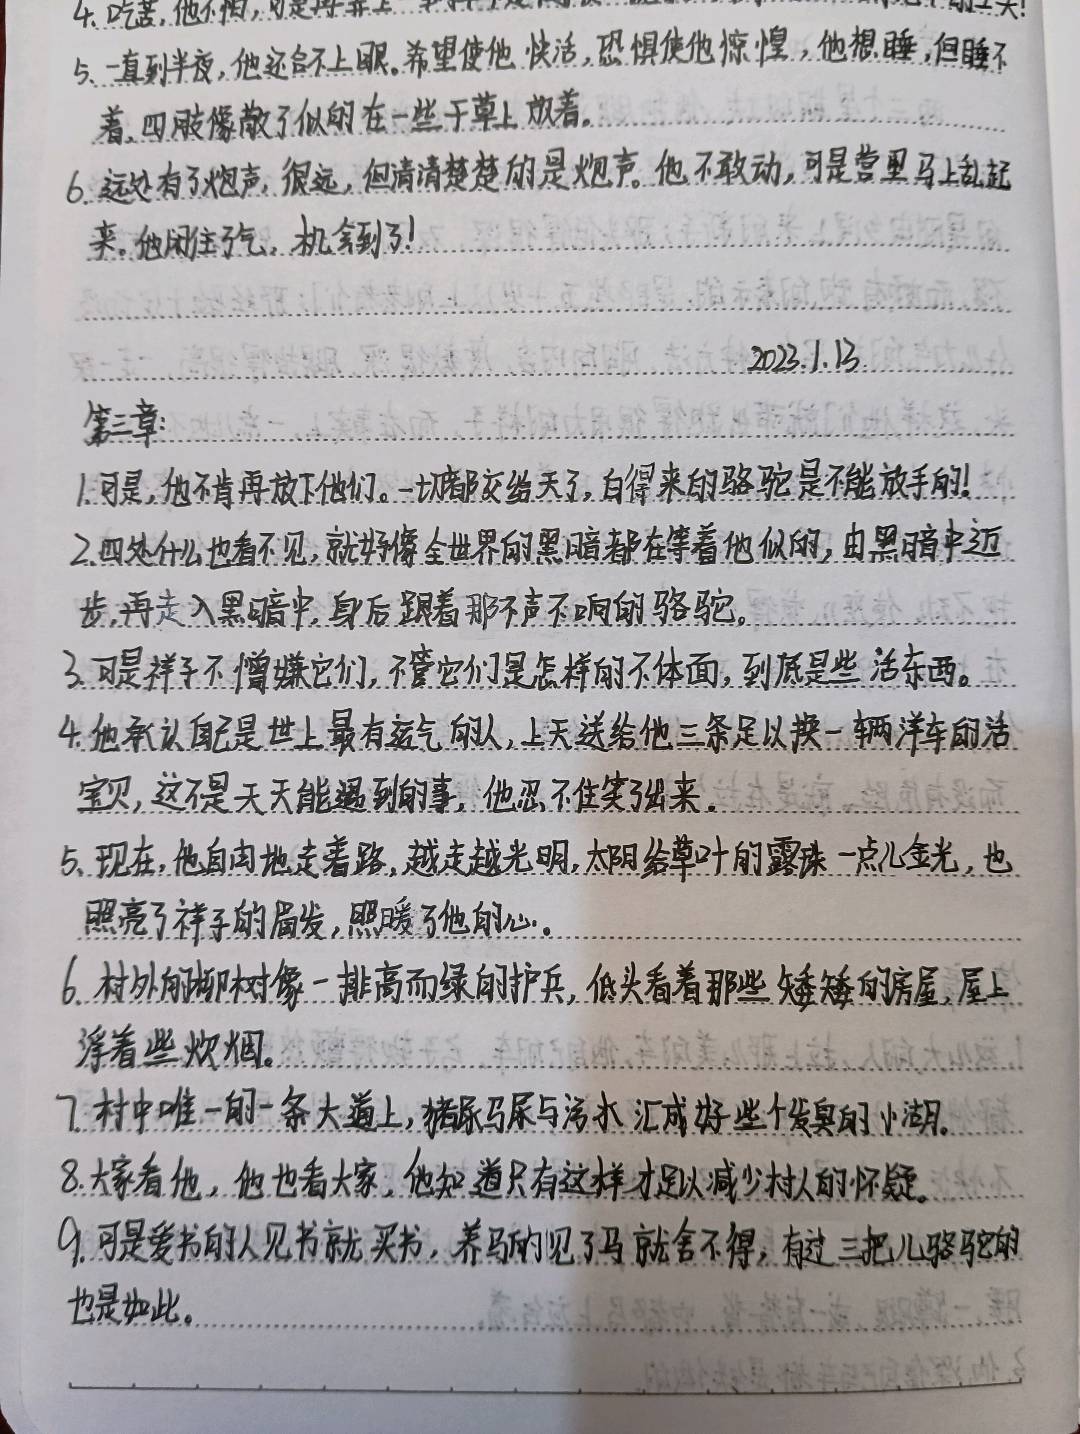 4. 吃苦,他不怕,可是再弄上一
5. 一直到半夜,他还合不上眼。希望使他快活,恐惧使他惊惶,他想睡,但睡不
着,四肢像散了似的在一些干草上放着。
6. 远处有了炮声,很远,但清清楚楚的是炮声。他不敢动,可是营里马上乱起
来。他闭住了气,机会到了!
2023.1.13
第三章:
1. 可是,他不肯再放下他们。一切都交给天了,白得来的骆驼是不能放手的!
2. 四处什么也看不见,就好像全世界的黑暗都在等着他似的,由黑暗中迈
步,再走入黑暗中,身后跟着那不声不响的骆驼。
3. 可是祥子不憎嫌它们,不管它们是怎样的不体面,到底是些活东西。
4. 他承认自己是世上最有运气的人,上天送给他三条足以换一辆洋车的活
宝贝,这不是天天能遇到的事,他忍不住笑了出来。
5. 现在,他自由地走着路,越走越光明,太阳给草叶的露珠一点儿金光,也
照亮了祥子的眉发,照暖了他的心。
6. 村外的柳树像一排高而绿的护兵,低头看着那些矮矮的房屋,屋上
浮着些炊烟。
7. 村中唯一的一条大道上,猪尿马尿与污水汇成好些个发臭的小湖。
8. 大家看他,他也看大家,他知道只有这样才足以减少村人的怀疑。
9. 可是爱书的人见书就买书,养马的见了马就舍不得,有过三把儿骆驼的
也是如此。